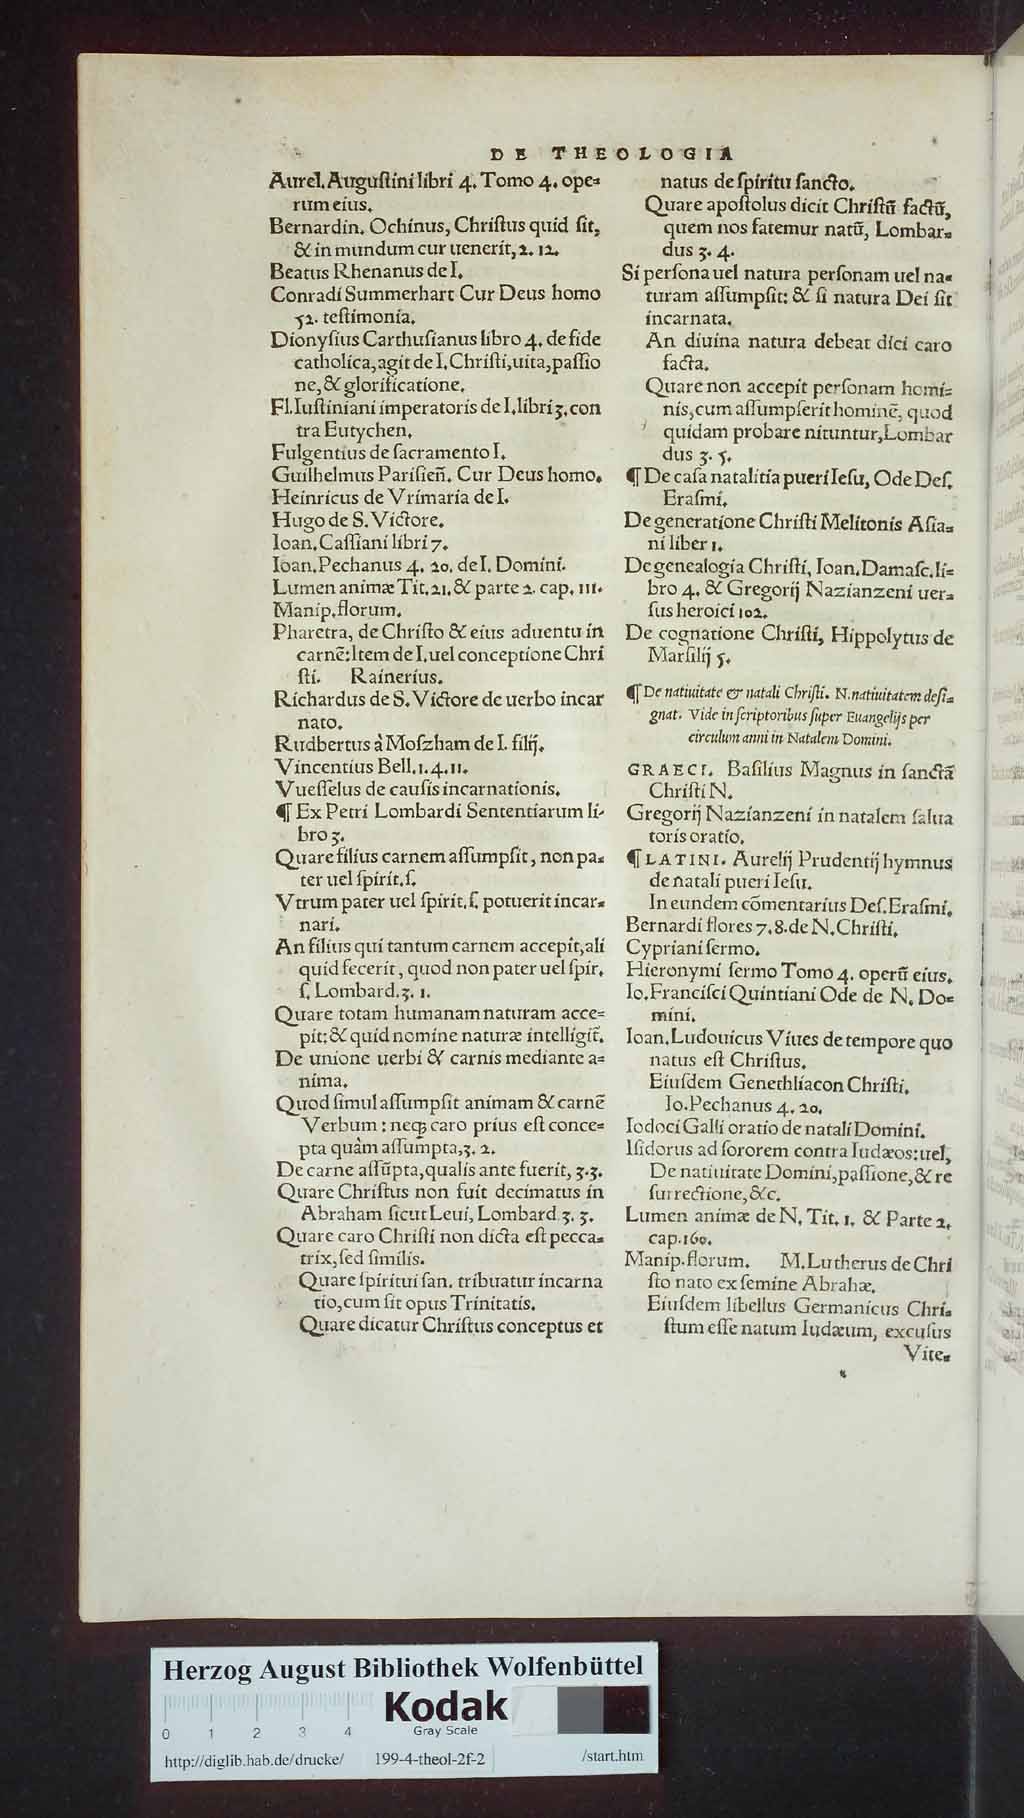 DE THEOLOGIA
Aurel. Auguſtini libri 4. Tomo 4. ope=
rum eius.
Bernardin. Ochinus, Chriſtus quid ſit,
& in mundum cur uenerit, 2. 12.
Beatus Rhenanus de I.
Conradi Summerhart Cur Deus homo
52. teſtimonia.
Dionyſius Carthuſianus libro 4. de fide
catholica, agit de I. Chriſti, uita, paſſio
ne, & glorificatione.
Fl. Iuſtiniani imperatoris de I. libri 3. con
tra Eutychen.
Fulgentius de ſacramento I.
Guilhelmus Pariſien̄. Cur Deus homo.
Heinricus de Vrimaria de I.
Hugo de S. Victore.
Ioan. Caſſiani libri 7.
Ioan. Pechanus 4. 20. de I. Domini.
Lumen animæ Tit. 21. & parte 2. cap. 111.
Manip. florum.
Pharetra, de Chriſto & eius aduentu in
carnē: Item de I. uel conceptione Chri
ſti. Rainerius.
Richardus de S. Victore de uerbo incar
nato.
Rudbertus à Moſzham de I. filij.
Vincentius Bell. 1. 4. 11.
Vueſſelus de cauſis incarnationis.
¶ Ex Petri Lombardi Sententiarum li-
bro 3.
Quare filius carnem aſſumpſit, non pa=
ter uel ſpirit. ſ.
Vtrum pater uel ſpirit. ſ. potuerit incar=
nari.
An filius qui tantum carnem accepit, ali
quid fecerit, quod non pater uel ſpir.
ſ. Lombard. 3. 1.
Quare totam humanam naturam acce=
pit: & quid nomine naturæ intelligit̄.
De unione uerbi & carnis mediante a=
nima.
Quod ſimul aſſumpſit animam & carnē
Verbum: neq; caro prius eſt conce=
pta quàm aſſum̄pta, 3. 2.
De carne aſſūpta, qualis ante fuerit, 3. 3.
Quare Chriſtus non fuit decimatus in
Abraham ſicut Leui, Lombard. 3. 3.
Quare caro Chriſti non dicta eſt pecca=
trix, ſed ſimilis.
Quare ſpiritui ſan. tribuatur incarna
tio, cum ſit opus Trinitatis.
Quare dicatur Chriſtus conceptus et
natus de ſpiritu ſancto.
Quare apoſtolus dicit Chriſtū factū,
quem nos fatemur natū, Lombar=
dus 3. 4.
Si perſona uel natura perſonam uel na=
turam aſſumpſit: & ſi natura Dei ſit
incarnata.
An diuina natura debeat dici caro
facta.
Quare non accepit perſonam homi=
nis, cum aſſumpſerit hominē, quod
quidam probare nituntur, Lombar
dus 3. 5.
¶ De caſa natalitia pueri Ieſu, Ode Deſ.
Eraſmi.
De generatione Chriſti Melitonis Aſia=
ni liber 1.
De genealogia Chriſti, Ioan. Damaſc. li=
bro 4. & Gregorij Nazianzeni uer=
ſus heroici 102.
De cognatione Chriſti, Hippolytus de
Marſilij 5.
¶ De natiuitate & natali Chriſti. N. natiuitatem deſi=
gnat. Vide in ſcriptoribus ſuper Euangelijs per
circulum anni in Natalem Domini.
GRAECI. Baſilius Magnus in ſanctā
Chriſti N.
Gregorij Nazianzeni in natalem ſalua
toris oratio.
¶ LATINI. Aurelij Prudentij hymnus
de natali pueri Ieſu.
In eundem cōmentarius Deſ. Eraſmi.
Bernardi flores 7. 8. de N. Chriſti.
Cypriani ſermo.
Hieronymi ſermo Tomo 4. operū eius.
Io. Franciſci Quintiani Ode de N. Do=
mini.
Ioan. Ludouicus Viues de tempore quo
natus eſt Chriſtus.
Eiuſdem Genethliacon Chriſti.
Io. Pechanus 4. 20.
Iodoci Galli oratio de natali Domini.
Iſidorus ad ſororem contra Iudæos: uel,
De natiuitate Domini, paſſione, & re
ſurrectione, &c.
Lumen animæ de N. Tit. 1. & Parte 2.
cap. 160.
Manip. florum. M. Lutherus de Chri
ſto nato ex ſemine Abrahæ.
Eiuſdem libellus Germanicus Chri=
ſtum eſſe natum Iudæum, excuſus
Vite=
Herzog August Bibliothek Wolfenbüttel
Kodak
Gray Scale
0 1 2 3 4
http://diglib.hab.de/drucke/ 199-4-theol-2f-2 /start.htm